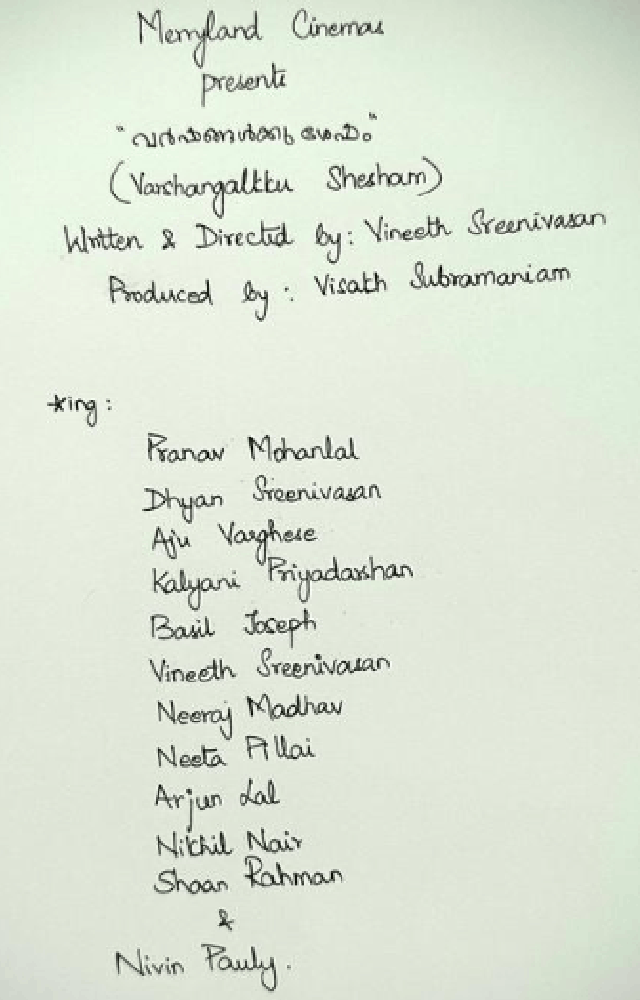 Merryland Cinemas
presents
"വർഷങ്ങൾക്കു ശേഷം"
(Varshangalkku Shesham)
Written & Directed by: Vineeth Sreenivasan
Produced by: Visakh Subramaniam
*king:
Pranav Mohanlal
Dhyan Sreenivasan
Aju Varghese
Kalyani Priyadarshan
Basil Joseph
Vineeth Sreenivasan
Neeraj Madhav
Neeta Pillai
Arjun Lal
Nikhil Nair
Shaan Rahman
&
Nivin Pauly.